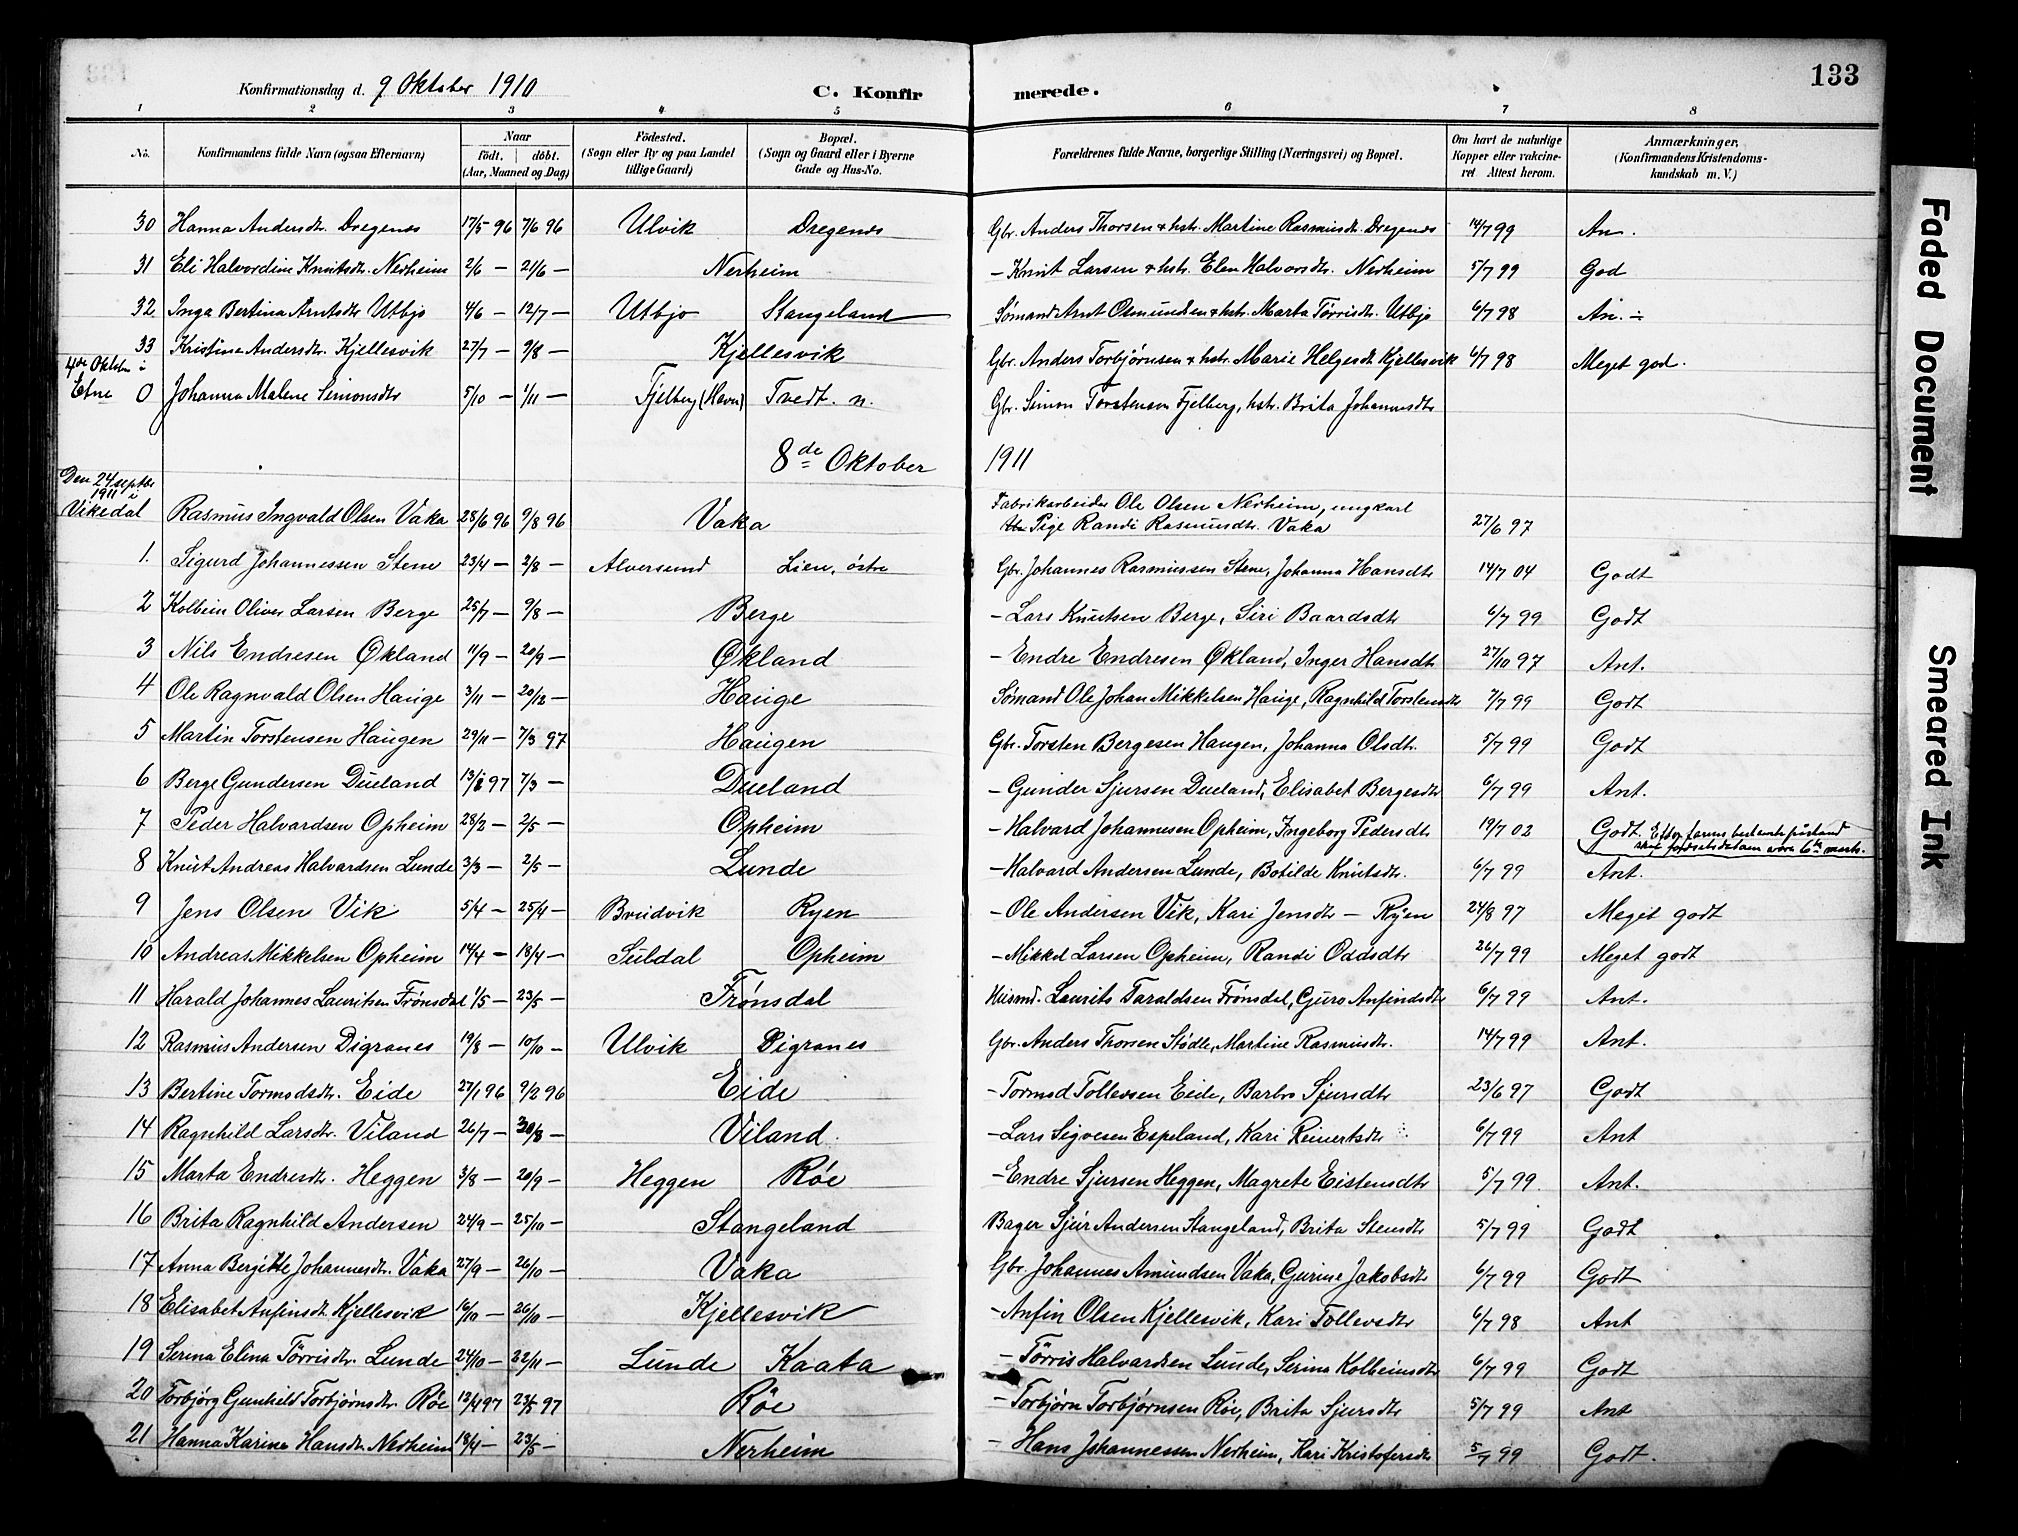 133
Konfirmationsdag d. 9 Oktober 1910 C. Konfirmerede.
1 2 3 4 5 6 7 8
No. Konfirmandens fulde Navn (ogsaa Efternavn) Naar födt. döbt. (Aar, Maaned og Dag) Födested. (Sogn eller By og paa Landet tillige Gaard) Bopæl. (Sogn og Gaard eller i Byerne Gade og Hus-No. Forældrenes fulde Navne, borgerlige Stilling (Næringsvei) og Bopæl. Om havt de naturlige Kopper eller vakcineret Attest herom. Anmærkninger. (Konfirmandens Kristendomskundskab m. V.)
30 Hanna Andersdtr. Dregenes 17/5 96 7/6 96 Ulvik Dregenes Gbr. Anders Thorsen & hstr. Martine Rasmusdtr. Dregenes 14/7 99 An.
31 Eli Halvordine Knutsdtr. Nerheim 2/6 – 21/6 – Nerheim – Knut Larsen & hstr. Elen Halvorsdtr. Nerheim 5/7 99 God
32 Inga Bertina Arntsdtr Utbjo 4/6 – 12/7 – Utbjo Stangeland Sömand Arnt Osmundsen & hstr. Marta Törrisdtr. Utbjo 6/7 98 An. –
33 Kristine Andersdtr. Kjellesvik 27/7 – 9/8 – Kjellesvik Gbr. Anders Torbjørnsen & hstr. Marie Helgesdtr Kjellesvik 6/7 98 Meget god.
4de Oktober i
Etne 0 Johanna Malene Simonsdtr 5/10 – 1/11 – Fjelberg (Havn) Tvedt. n. Gbr. Simon Torstensen Fjelberg, hstr. Brita Johannesdtr
8de Oktober 1911
Den 24 septbr
1911 i
Vikedal Rasmus Ingvald Olsen Vaka 28/6 96 9/8 96 Vaka Fabrikarbeider Ole Olsen Nerheim, ungkarl
Pige Randi Rasmusdtr. Vaka 27/6 97
1. Sigurd Johannessen Stene 23/4 – 2/8 – Alversund Lien, østre Gbr. Johannes Rasmussen Stene, Johanna Hansdtr 14/7 04 Godt
2 Kolbein Oliver Larsen Berge 25/7 – 9/8 – Berge – Lars Knutsen Berge, Siri Baardsdtr 6/7 99 Godt
3 Nils Endresen Økland 11/9 – 20/9 – Økland – Endre Endresen Økland, Inger Hansdtr 27/10 97 Ant.
4 Ole Ragnvald Olsen Hauge 3/11 – 20/12 – Hauge Sømand Ole Johan Mikkelsen Hauge, Ragnhild Torstensdtr 7/7 99 Godt
5 Martin Torstensen Haugen 29/11 – 7/3 97 Haugen Gbr. Torsten Bergesen Haugen, Johanna Olsdtr. 5/7 99 Godt
6 Berge Gundersen Dueland 13/2 97 7/3 – Dueland – Gunder Sjursen Dueland, Elisabet Bergesdtr 6/7 99 Ant.
7 Peder Halvardsen Opheim 28/2 – 2/5 – Opheim – Halvard Johannesen Opheim, Ingeborg Pedersdtr 19/7 02 Godt. Efter farens bestemte paastand skal fødselsdatoen være 6te marts.
8 Knut Andreas Halvardsen Lunde 3/3 – 2/5 – Lunde – Halvard Andersen Lunde, Botilde Knutsdtr. 6/7 99 Ant.
9 Jens Olsen Vik 5/4 – 25/4 – Brudvik Ryen – Ole Andersen Vik, Kari Jensdtr – Ryen 24/8 97 Meget godt
10 Andreas Mikkelsen Opheim 14/4 – 18/4 – Suldal Opheim – Mikkel Larsen Opheim, Randi Oddsdtr 26/7 99 Meget godt
11 Harald Johannes Lauritsen Frønsdal 1/5 – 23/5 – Frønsdal Husmd. Laurits Taraldsen Frønsdal, Guro Anfindsdtr 6/7 99 Ant.
12 Rasmus Andersen Digranes 19/8 – 10/10 – Ulvik Digranes Gbr. Anders Thorsen Stødle, Martine Rasmusdtr. 14/7 99 Ant.
13 Bertine Tormodsdtr. Eide 27/1 96 9/2 96 Eide – Tormod Tollevsen Eide, Barbro Sjursdtr 23/6 97 Godt
14 Ragnhild Larsdtr. Viland 26/7 – 30/8 – Viland – Lars Sigvesen Espeland, Kari Reinertsdtr 6/7 99 Ant
15 Marta Endresdtr. Heggen 3/8 – 20/9 – Heggen Røe – Endre Sjursen Heggen, Magrete Eistensdtr 5/7 99 Ant.
16 Brita Ragnhild Andersen 24/9 – 25/10 – Stangeland Bager Sjur Andersen Stangeland, Brita Stensdtr 5/7 99 Godt
17 Anna Bergitte Johannesdtr. Vaka 27/9 – 26/10 – Vaka Gbr. Johannes Amundsen Vaka, Gurine Jakobsdtr 6/7 99 Godt
18 Elisabet Anfinsdtr. Kjellesvik 16/10 – 26/10 – Kjellesvik – Anfin Olsen Kjellesvik, Kari Tollevsdtr 6/7 98 Ant
19 Serina Elina Törrisdtr. Lunde 24/10 – 22/11 – Lunde Kaata – Törris Halvardsen Lunde, Serina Kolbeinsdtr 6/7 99 Godt
20 Torbjörg Gunhild Torbjørnsdtr. Røe 12/4 97 23/5 97 Røe – Torbjørn Torbjørnsen Røe, Brita Sjursdtr 5/7 99 Ant
21 Hanna Karine Hansdtr. Nerheim 18/4 – 23/5 – Nerheim – Hans Johannessen Nerheim, Kari Kristofersdtr 5/7 99 Godt.
Faded Document
Smeared Ink